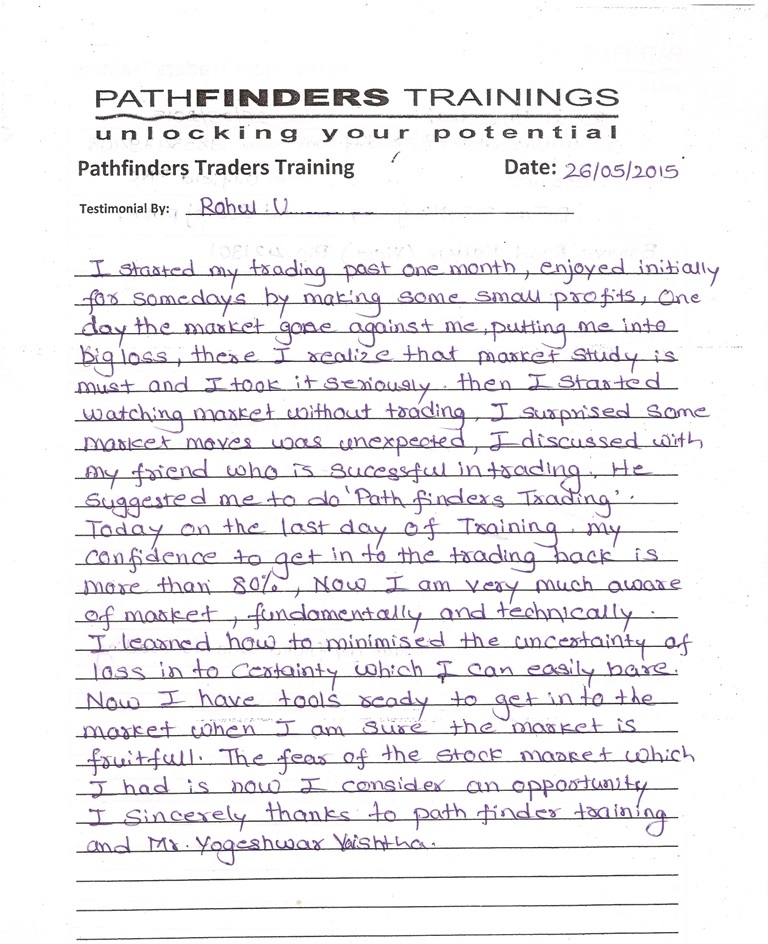 PATHFINDERS TRAININGS
unlocking your potential
Pathfinders Traders Training Date: 26/05/2015
Testimonial By: Rahul U
I started my trading past one month, enjoyed initially
for somedays by making some small profits, One
day the market gone against me, putting me into
big loss, there I realize that market study is
must and I took it seriously. then I started
watching market without trading, I surprised some
market moves was unexpected, I discussed with
my friend who is sucessful in trading. He
suggested me to do 'Path finders Trading'.
Today on the last day of Training my
confidence to get in to the trading back is
more than 80%, Now I am very much aware
of market, fundamentally and technically.
I learned how to minimised the uncertainty of
loss in to certainty which I can easily bare.
Now I have tools ready to get in to the
market when I am sure the market is
fruitfull. The fear of the stock market which
I had is now I consider an opportunity
I Sincerely thanks to path finder training
and Mr. Yogeshwar Vaishtha.